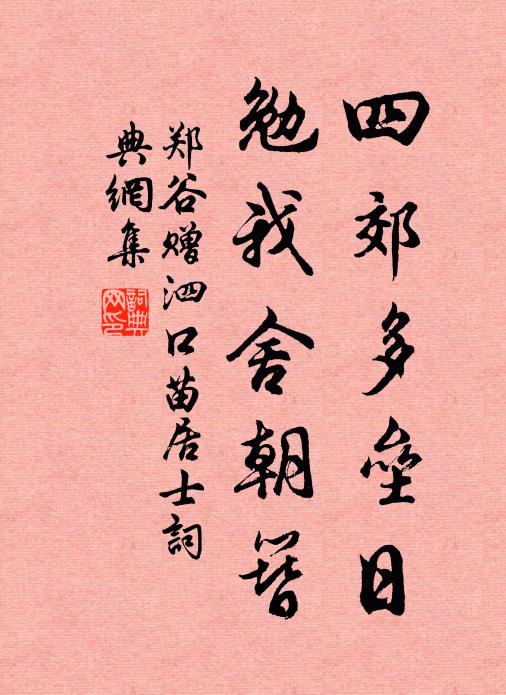 四郊多垒日
勉我舍朝簪
郑谷赠泗口苗居士詞
典網集
詞典网印